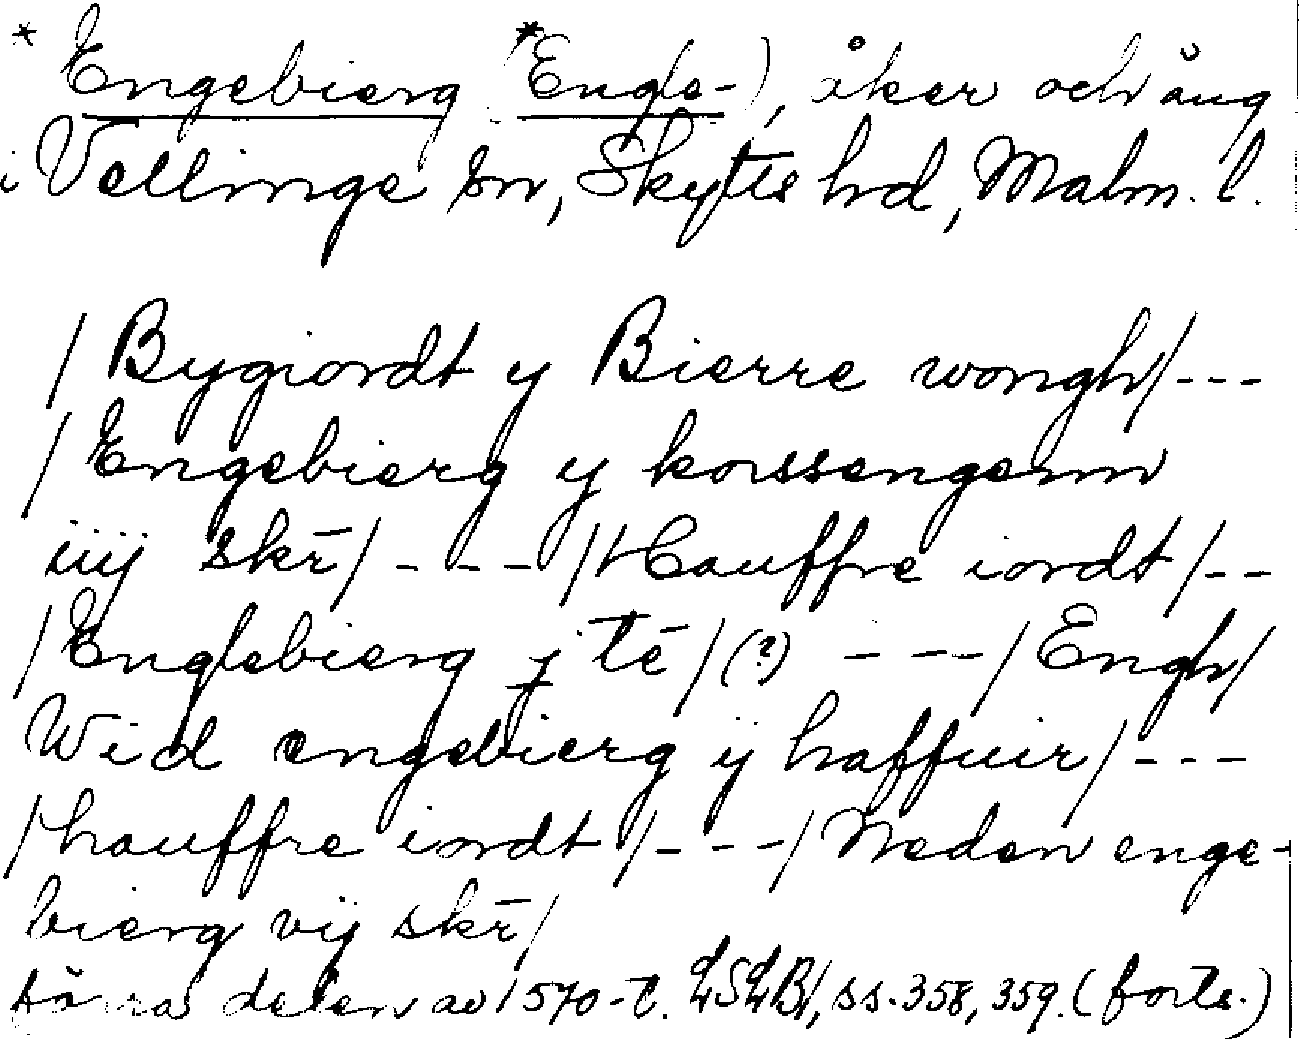 * Engebierg (*Engle-), åker och äng
i Vellinge sn, Skytts hd, Malm. l.
/ Bygiordt y Bierre wongh/ - - -
/ Engebierg y korssengenn
iiij skr̄ / - - - / Hauffre iordt / - -
/ Englebierg j tē / (?) - - - / Engh /
Wid engebierg ÿ haffuir / - - -
/ hauffre iordt / - - - / Neden enge-
bierg vij skr̄ /
delen av 1570-t. LSLB, ss. 358, 359. (forts.)